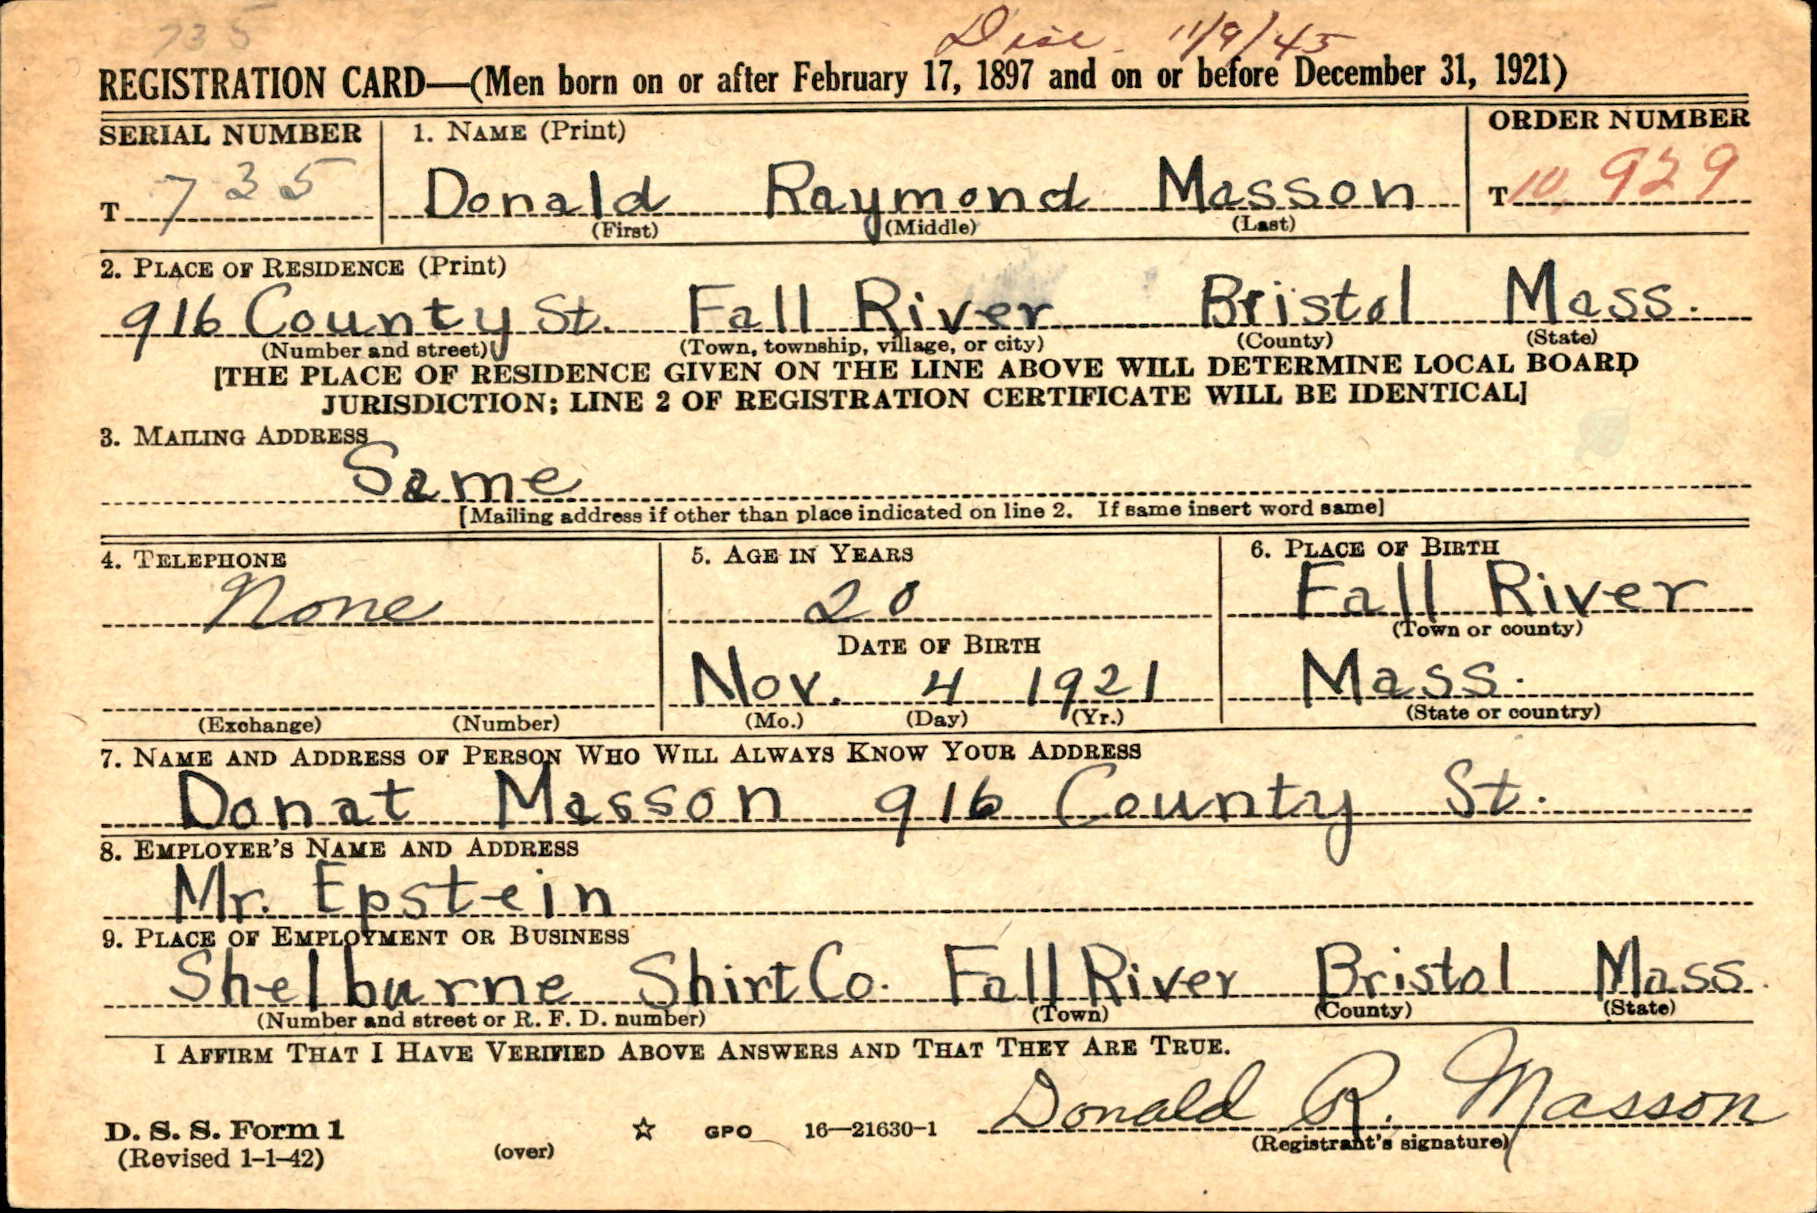 735
Disc. 11/9/45
REGISTRATION CARD—(Men born on or after February 17, 1897 and on or before December 31, 1921)
SERIAL NUMBER 1. NAME (Print) ORDER NUMBER
T 735 Donald Raymond Masson T 10,929
(First) (Middle) (Last)
2. PLACE OF RESIDENCE (Print)
916 County St. Fall River Bristol Mass.
(Number and street) (Town, township, village, or city) (County) (State)
[THE PLACE OF RESIDENCE GIVEN ON THE LINE ABOVE WILL DETERMINE LOCAL BOARD
JURISDICTION; LINE 2 OF REGISTRATION CERTIFICATE WILL BE IDENTICAL]
3. MAILING ADDRESS
Same
[Mailing address if other than place indicated on line 2. If same insert word same]
4. TELEPHONE 5. AGE IN YEARS 6. PLACE OF BIRTH
None 20 Fall River
(Town or county)
DATE OF BIRTH
Nov. 4 1921 Mass.
(Exchange) (Number) (Mo.) (Day) (Yr.) (State or country)
7. NAME AND ADDRESS OF PERSON WHO WILL ALWAYS KNOW YOUR ADDRESS
Donat Masson 916 County St.
8. EMPLOYER'S NAME AND ADDRESS
Mr. Epstein
9. PLACE OF EMPLOYMENT OR BUSINESS
Shelburne Shirt Co. Fall River Bristol Mass.
(Number and street or R. F. D. number) (Town) (County) (State)
I AFFIRM THAT I HAVE VERIFIED ABOVE ANSWERS AND THAT THEY ARE TRUE.
Donald R. Masson
D. S. S. Form 1 GPO 16—21630-1
(Revised 1-1-42) (over) (Registrant's signature)